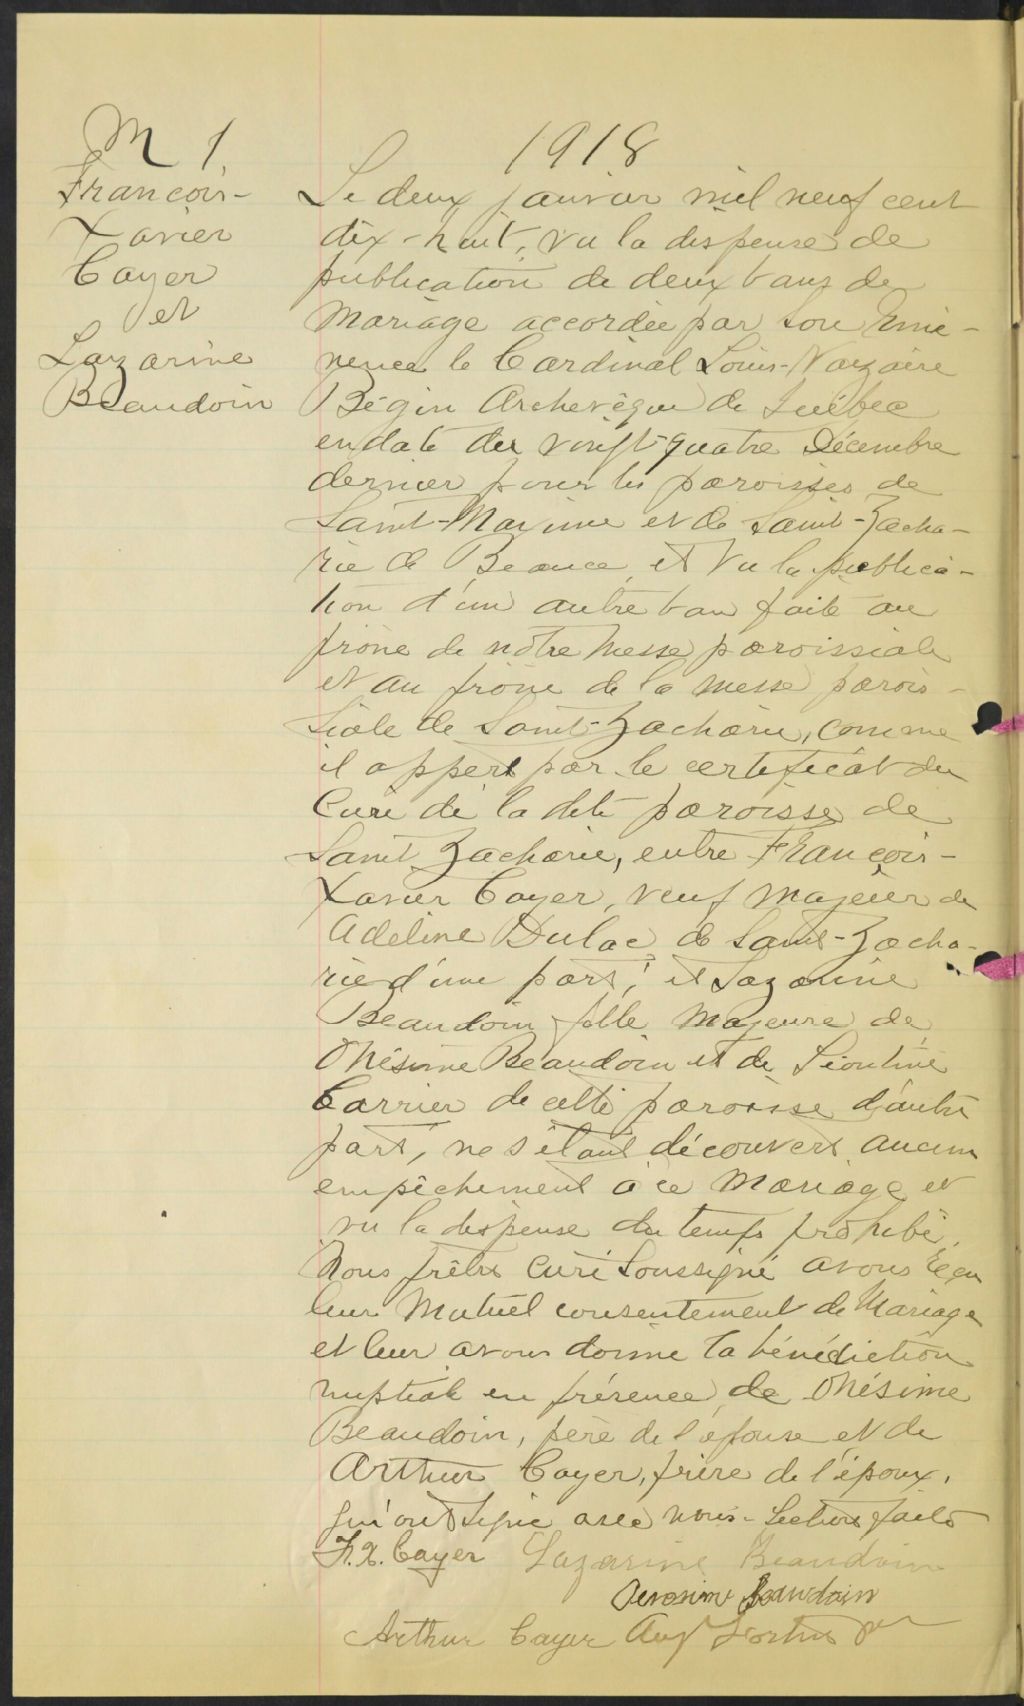 M 1
François-
Xavier
Cayer
et
Lazarine
Beaudoin
1918
Le deux janvier mil neuf cent
dix-huit, vu la dispense de
publication de deux bans de
Mariage accordée par Son Emi-
nence le Cardinal Louis-Nazaire
Bégin Archevêque de Québec
en date du vingt-quatre Décembre
dernier pour les paroisses de
Saint-Maxime et de Saint-Zacha-
rie de Beauce, et vu la publica-
tion d'un autre ban faite au
prône de notre Messe paroissiale
et au prône de la messe parois-
siale de Saint-Zacharie, comme
il appert par le certificat du
Curé de la dite paroisse de
Saint Zacharie, entre François-
Xavier Cayer, veuf majeur de
Adeline Dulac de Saint-Zacha-
rie d'une part; et Lazarine
Beaudoin fille Majeure de
Onésime Beaudoin et de Léontine
Carrier de cette paroisse d'autre
part, ne s'étant découvert aucun
empêchement à ce Mariage et
vu la dispense du temps prohibé,
Nous prêtre Curé Soussigné avons reçu
leur Mutuel consentement de Mariage
et leur avons donné la bénédiction
nuptiale en présence de Onésime
Beaudoin, père de l'épouse et de
Arthur Cayer, frère de l'époux,
qui ont signé avec nous. Lecture faite
F.X. Cayer Lazarine Beaudoin
Beaudoin
Arthur Cayer Aug Fortier ptre